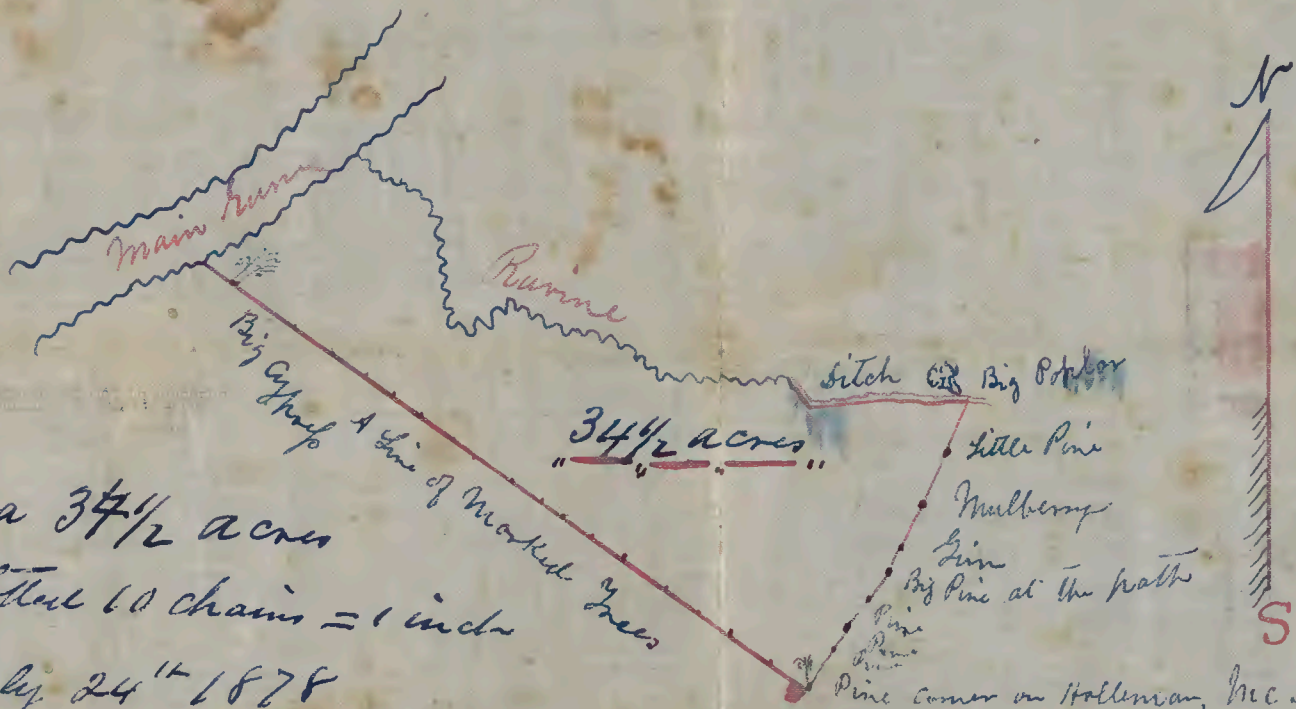 N
Main Run
Ravine
Ditch Big Poplar
Big Cypress A Line of Marked Trees
34 1/2 acres
Little Pine
Mulberry
Big Pine at the path
Pine
Pine
Pine corner on Holleman, Mc.
S
a 34 1/2 acres
10 chains = 1 inch
ly 24th 1878